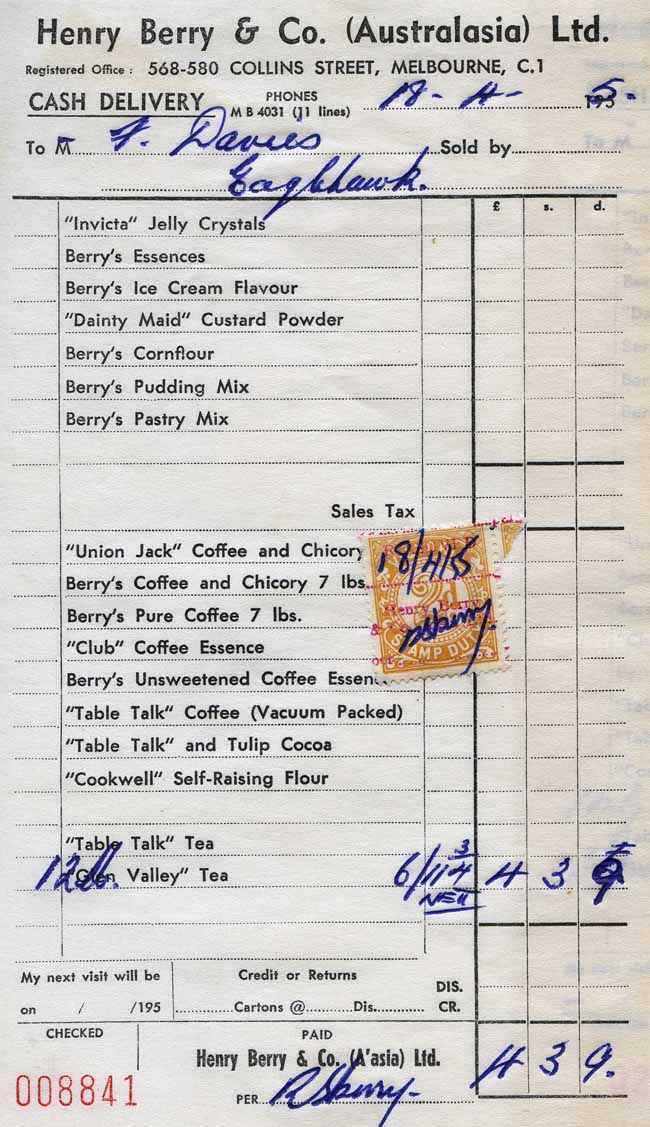 Henry Berry & Co. (Australasia) Ltd.
Registered Office : 568-580 COLLINS STREET, MELBOURNE, C.1
CASH DELIVERY PHONES M B 4031 (11 lines) 18-4-1955.
To M F. Davies Sold by
Eaglehawk.
£ s. d.
"Invicta" Jelly Crystals
Berry's Essences
Berry's Ice Cream Flavour
"Dainty Maid" Custard Powder
Berry's Cornflour
Berry's Pudding Mix
Berry's Pastry Mix
Sales Tax
"Union Jack" Coffee and Chicory
Berry's Coffee and Chicory 7 lbs.
Berry's Pure Coffee 7 lbs.
"Club" Coffee Essence
Berry's Unsweetened Coffee Essence
"Table Talk" Coffee (Vacuum Packed)
"Table Talk" and Tulip Cocoa
"Cookwell" Self-Raising Flour
18/4/55
Henry Berry
STAMP DUTY
"Table Talk" Tea
12 lb. "Glen Valley" Tea 6/11 3/4 4 3 9
NETT
My next visit will be
on / /195
Credit or Returns
Cartons @ Dis.
DIS.
CR.
CHECKED
008841
PAID
Henry Berry & Co. (A'asia) Ltd. 4 3 9.
PER